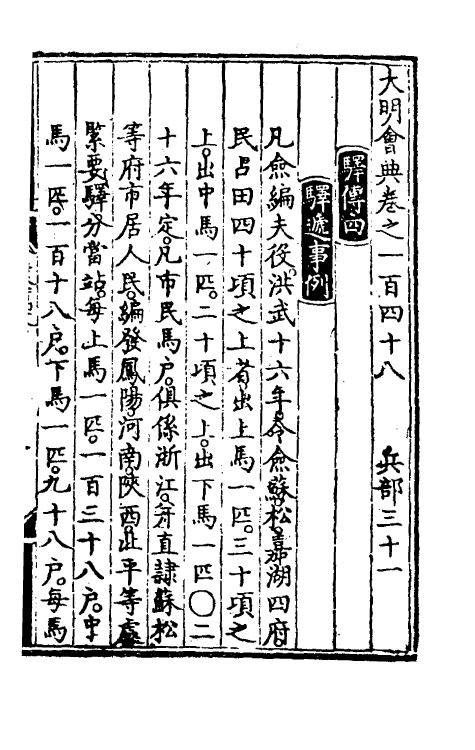 大明會典卷之一百四十八　兵部三十一
驛傳四
驛遞事例
凡僉編夫役。洪武十六年。令僉蘇松嘉湖四府。
民占田四十頃之上者。出上馬一匹。三十頃之
上。出中馬一匹。二十頃之上。出下馬一匹○二
十六年定。凡市民馬戶。俱係浙江。并直隸蘇松
等府市居人民。編發鳳陽。河南。陝西。北平等處
緊要驛分當站。每上馬一匹。一百三十八戶。中
馬一匹。一百十八戶。下馬一匹。九十八戶。每馬